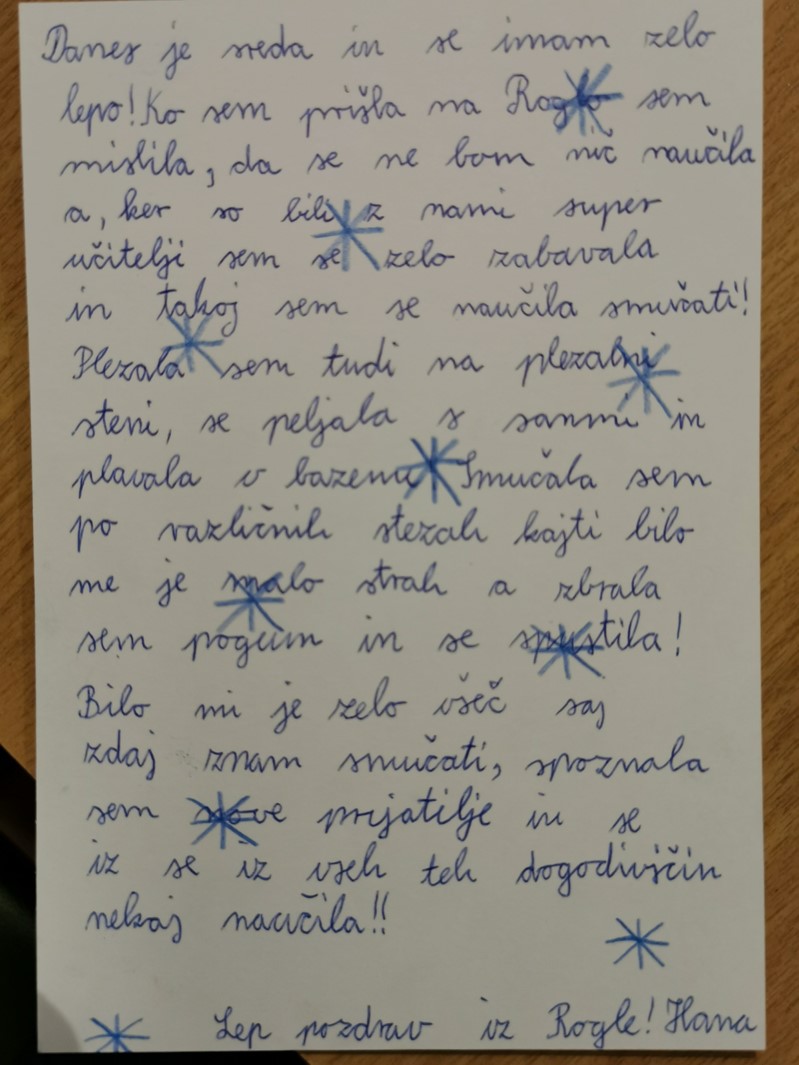 Danes je sreda in se imam zelo
lepo! Ko sem prišla na Roglo sem
mislila, da se ne bom nič naučila
a, ker so bili z nami super
učitelji sem se zelo zabavala
in takoj sem se naučila smučati!
Plezala sem tudi na plezalni
steni, se peljala s sanmi in
plavala v bazenu Smučala sem
po različnih stezah kajti bilo
me je malo strah a zbrala
sem pogum in se spustila!
Bilo mi je zelo všeč saj
zdaj znam smučati, spoznala
sem nove prijatilje in se
iz se iz vseh teh dogodivščin
nekaj naučila!!
Lep pozdrav iz Rogle! Hana